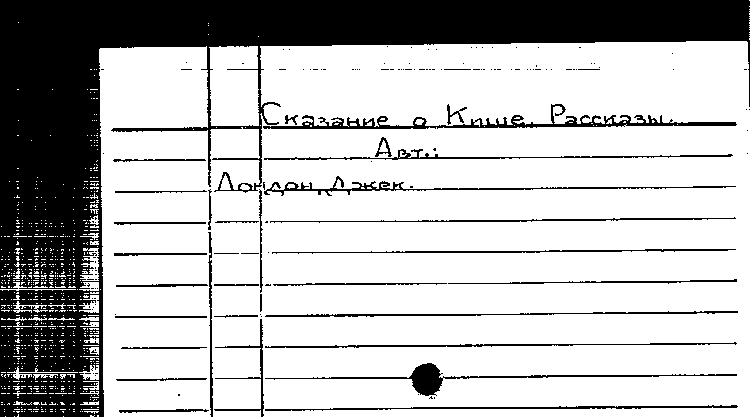 Сказание о Кише. Рассказы.
Авт.:
Лондон, Джек.